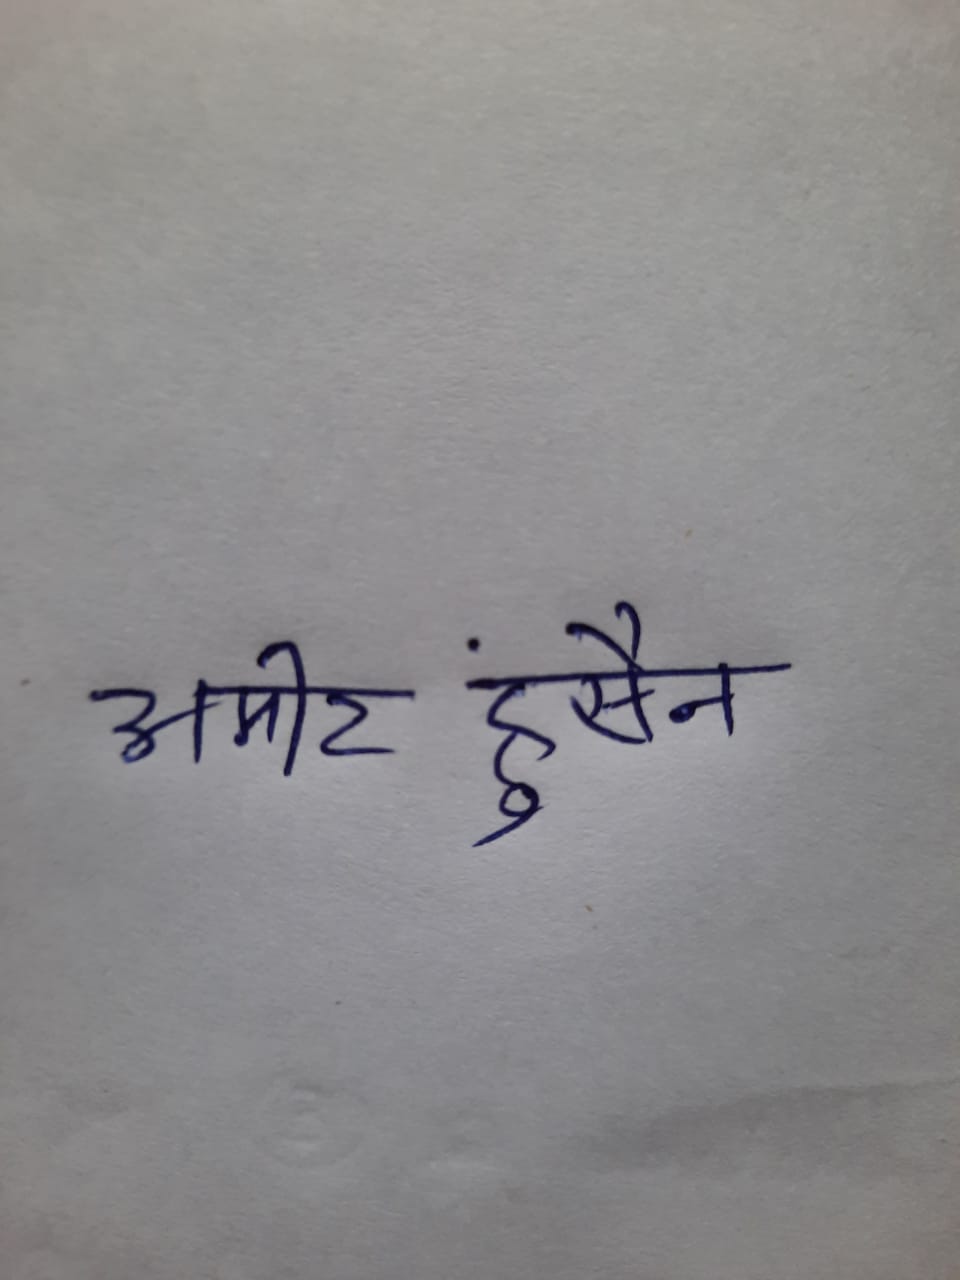 अमीर हुंसैन